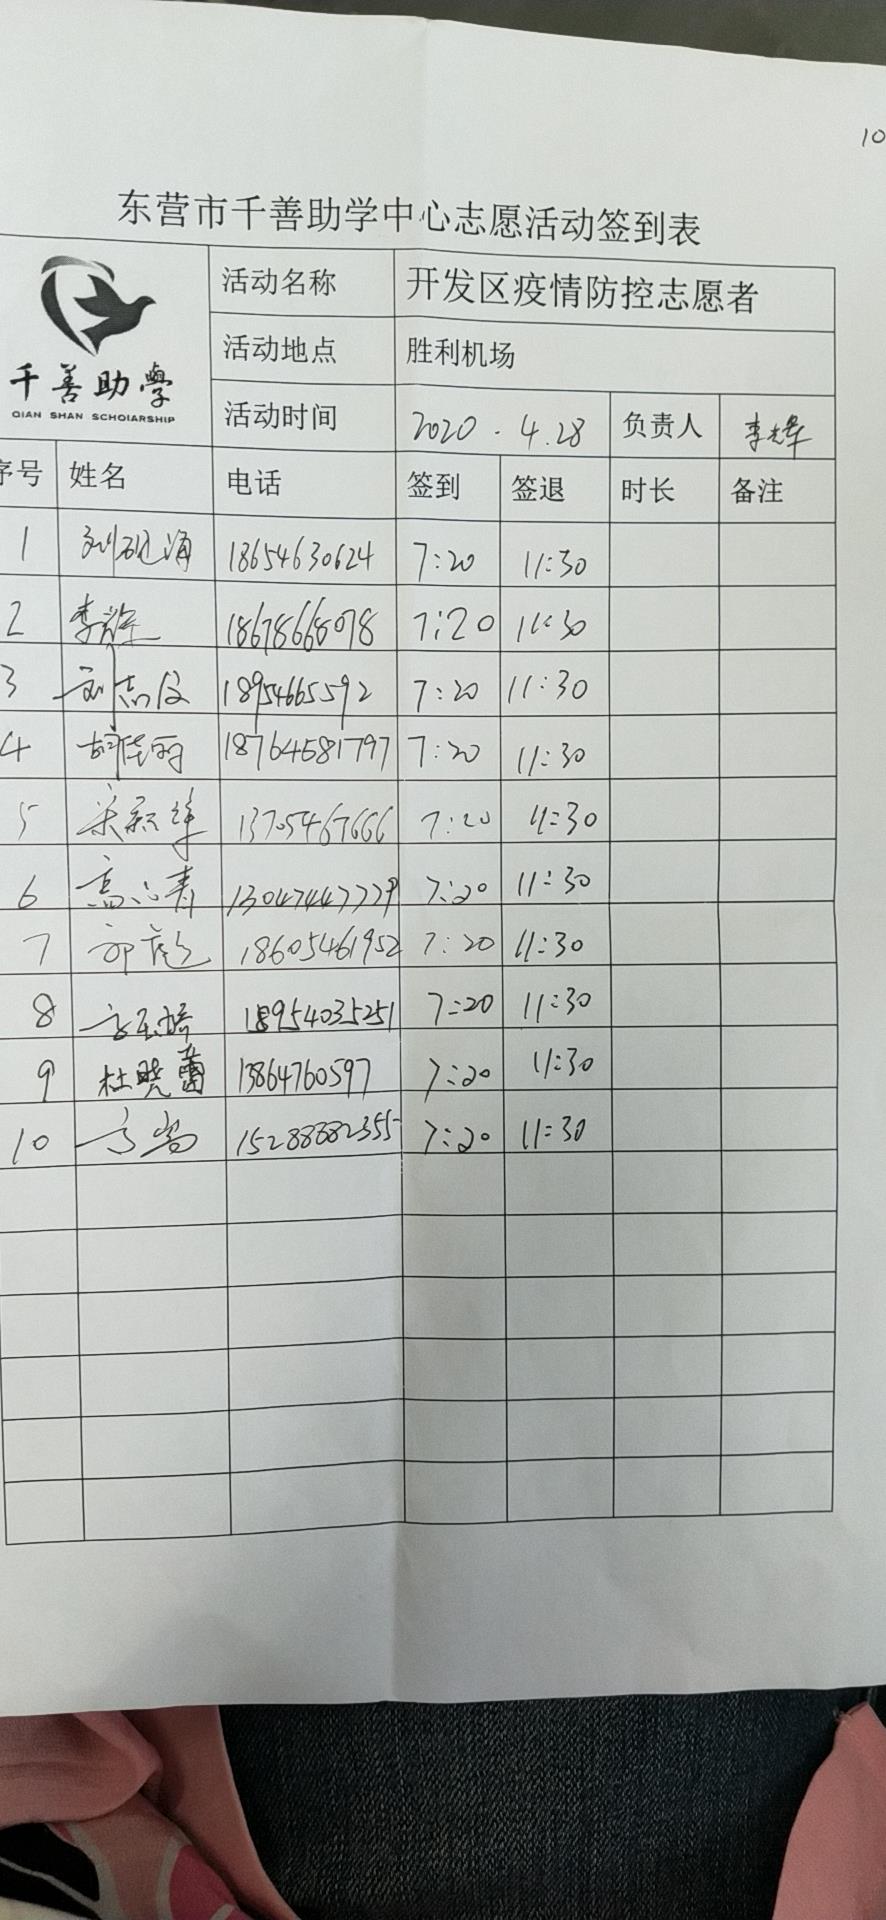 10
东营市千善助学中心志愿活动签到表
千善助學
QIAN SHAN SCHOIARSHIP
活动名称 开发区疫情防控志愿者
活动地点 胜利机场
活动时间 2020.4.28 负责人 李辉
序号 姓名 电话 签到 签退 时长 备注
1 刘砚涛 18654630624 7:20 11:30
2 李辉 18678668078 7:20 11:30
3 刘志俊 18954665592 7:20 11:30
4 胡佳丽 18764581797 7:20 11:30
5 13705467666 7:20 11:30
6 高心青 13047447779 7:20 11:30
7 18605461952 7:20 11:30
8 18954035251 7:20 11:30
9 杜晓蕾 13864760597 7:20 11:30
10 15288882355 7:20 11:30